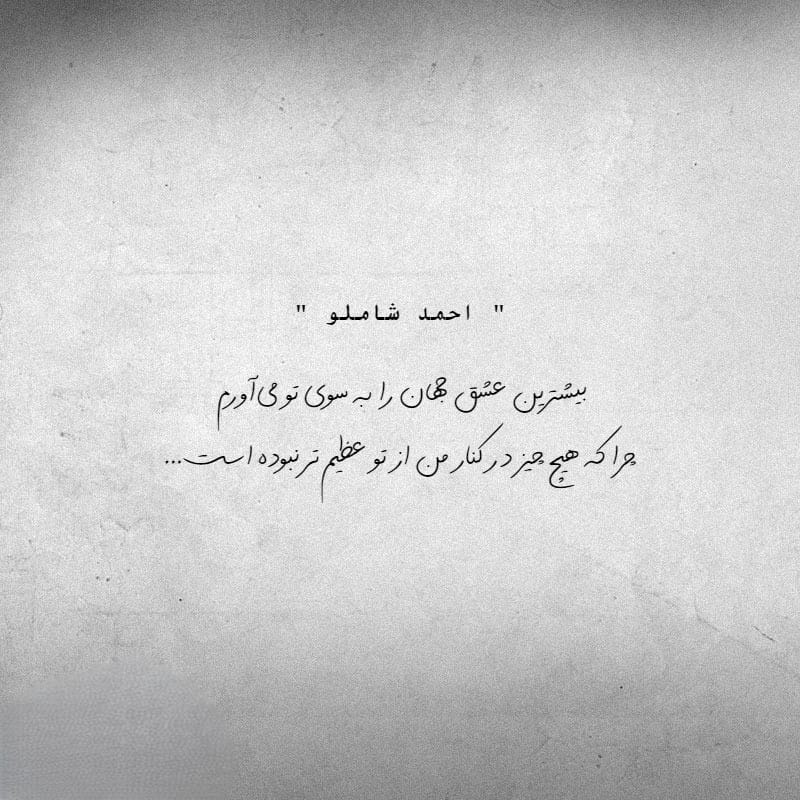 " احمد شاملو "
بیشترین عشق جهان را به سوی تو می‌آورم
چرا که هیچ چیز در کنار من از تو عظیم تر نبوده است...